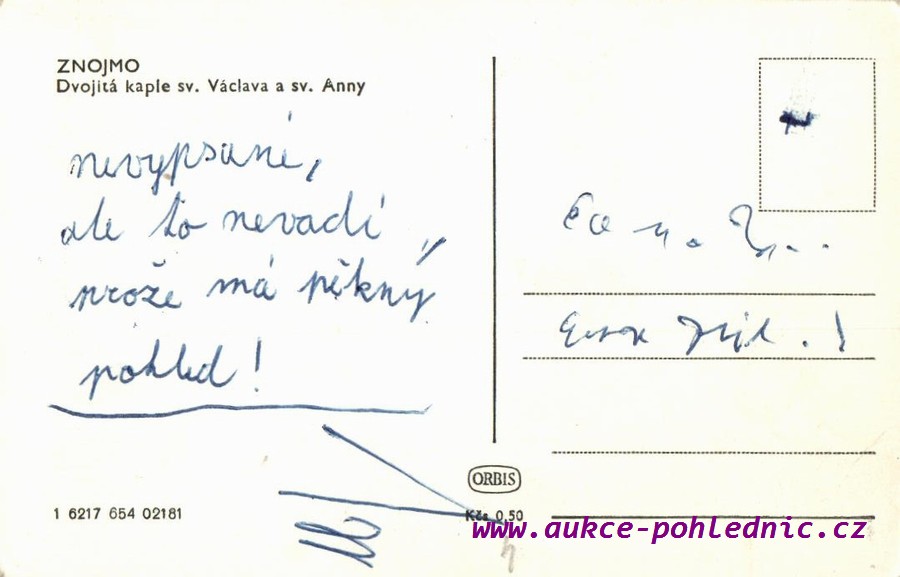 ZNOJMO
Dvojitá kaple sv. Václava a sv. Anny
nevypsané,
ale to nevadí,
má pěkný
pohled!
1 6217 654 02181
ORBIS
Kčs 0,50
www.aukce-pohlednic.cz